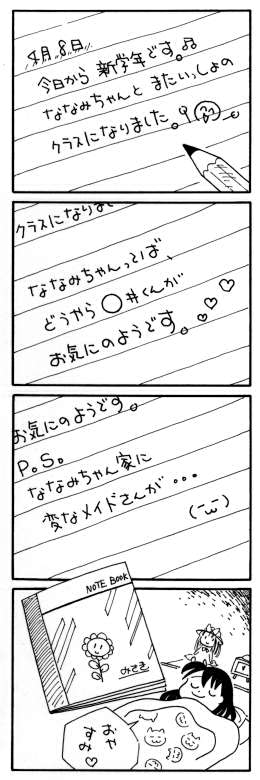 4月8日
今日から 新学年です。♫
ななみちゃんと またいっしょの
クラスになりました。
クラスになりまし
ななみちゃんってば、
どうやら ○井くんが
お気にのようです。♡♡♡
お気にのようです。
P.S.
ななみちゃん家に
変なメイドさんが・・・
(-ω-)
NOTE BOOK
みさき
おや
すみ♡